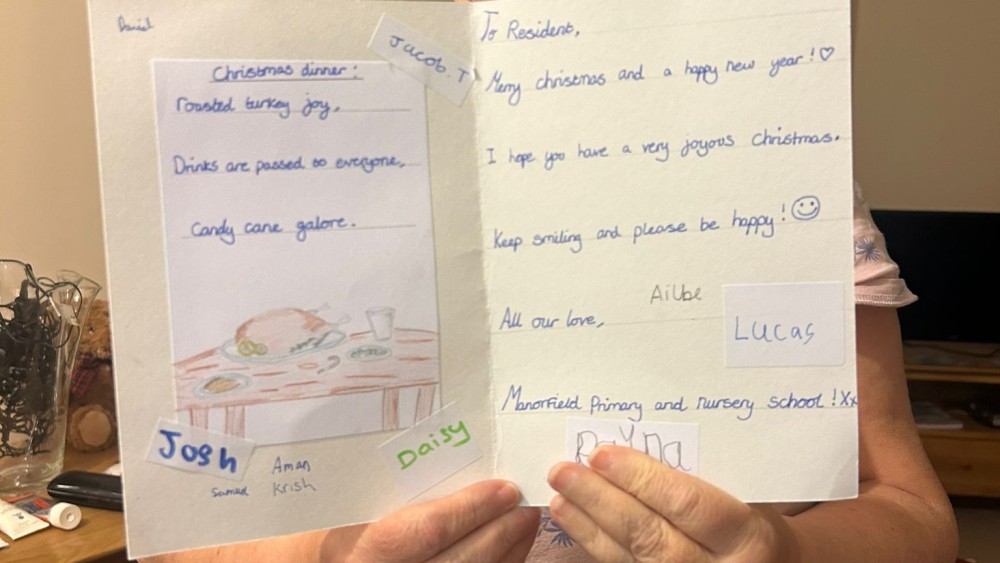 Daniel
Jacob.T
Christmas dinner:
roasted turkey joy,
Drinks are passed to everyone,
Candy cane galore.
Josh
Aman
Samed
Krish
Daisy
To Resident,
Merry christmas and a happy new year!♡
I hope you have a very joyous Christmas.
Keep smiling and please be happy!☺
Ailbe
All our love,
Lucas
Manorfield Primary and nursery school!Xx